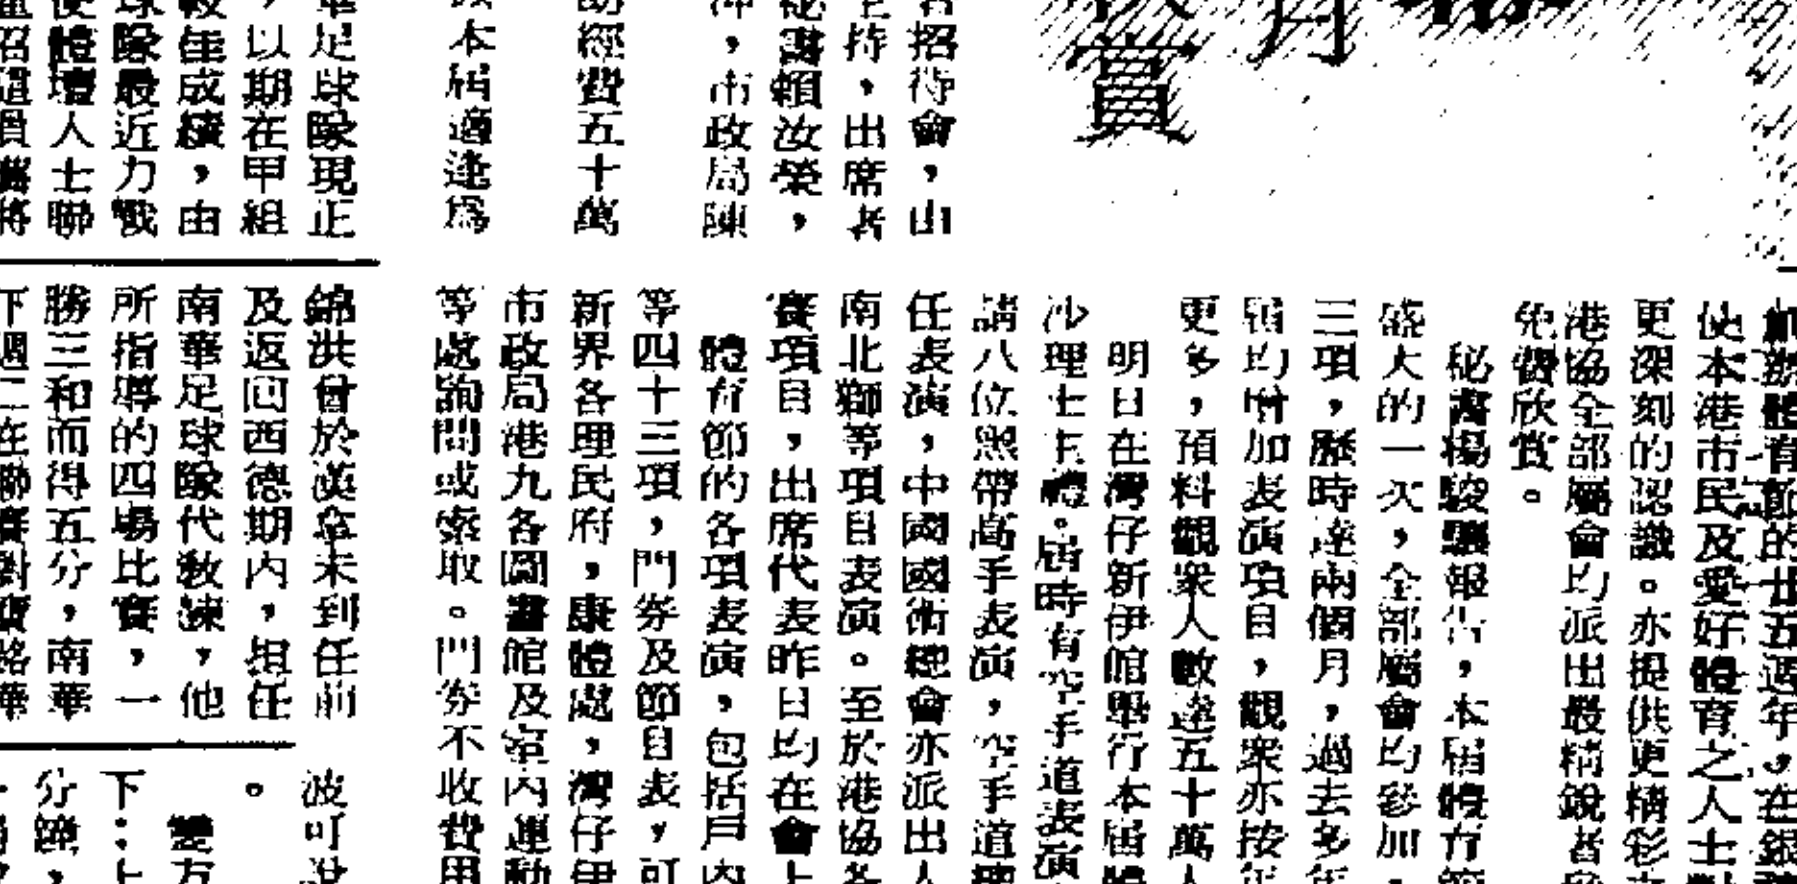 月
賞
者招待會，由
主持，出席者
秘書賴汝榮，
沖，市政局陳
助經費五十萬
本屆適逢爲
華足球隊現正
，以期在甲組
較佳成績，由
球隊最近力戰
使體壇人士聯
體育節的廿五週年，在銀
使本港市民及愛好體育之人士對
更深刻的認識。亦提供更精彩
港協全部屬會均派出最精銳者參
免費欣賞。
秘書楊駿驤報告，本屆體育節
盛大的一次，全部屬會均參加，
三項，歷時達兩個月，過去多年
屆均增加表演項目，觀衆亦按年
更多，預料觀衆人數達五十萬人
明日在灣仔新伊館舉行本屆體
沙理士主禮。屆時有空手道表演
請八位黑帶高手表演，空手道總
任表演，中國國術總會亦派出人
南北獅等項目表演。至於港協各
賽項目，出席代表昨日均在會上
體育節的各項表演，包括戶內
等四十三項，門券及節目表，可
新界各理民府，康體處，灣仔伊
市政局港九各圖書館及室內運動
等處詢問或索取。門券不收費用
錦洪曾於漢拿未到任前
及返回西德期內，担任
南華足球隊代敎練，他
所指導的四場比賽，一
勝三和而得五分，南華
下週二在聯賽對寶路華
波可說
。
雙方
下：上
分鐘，